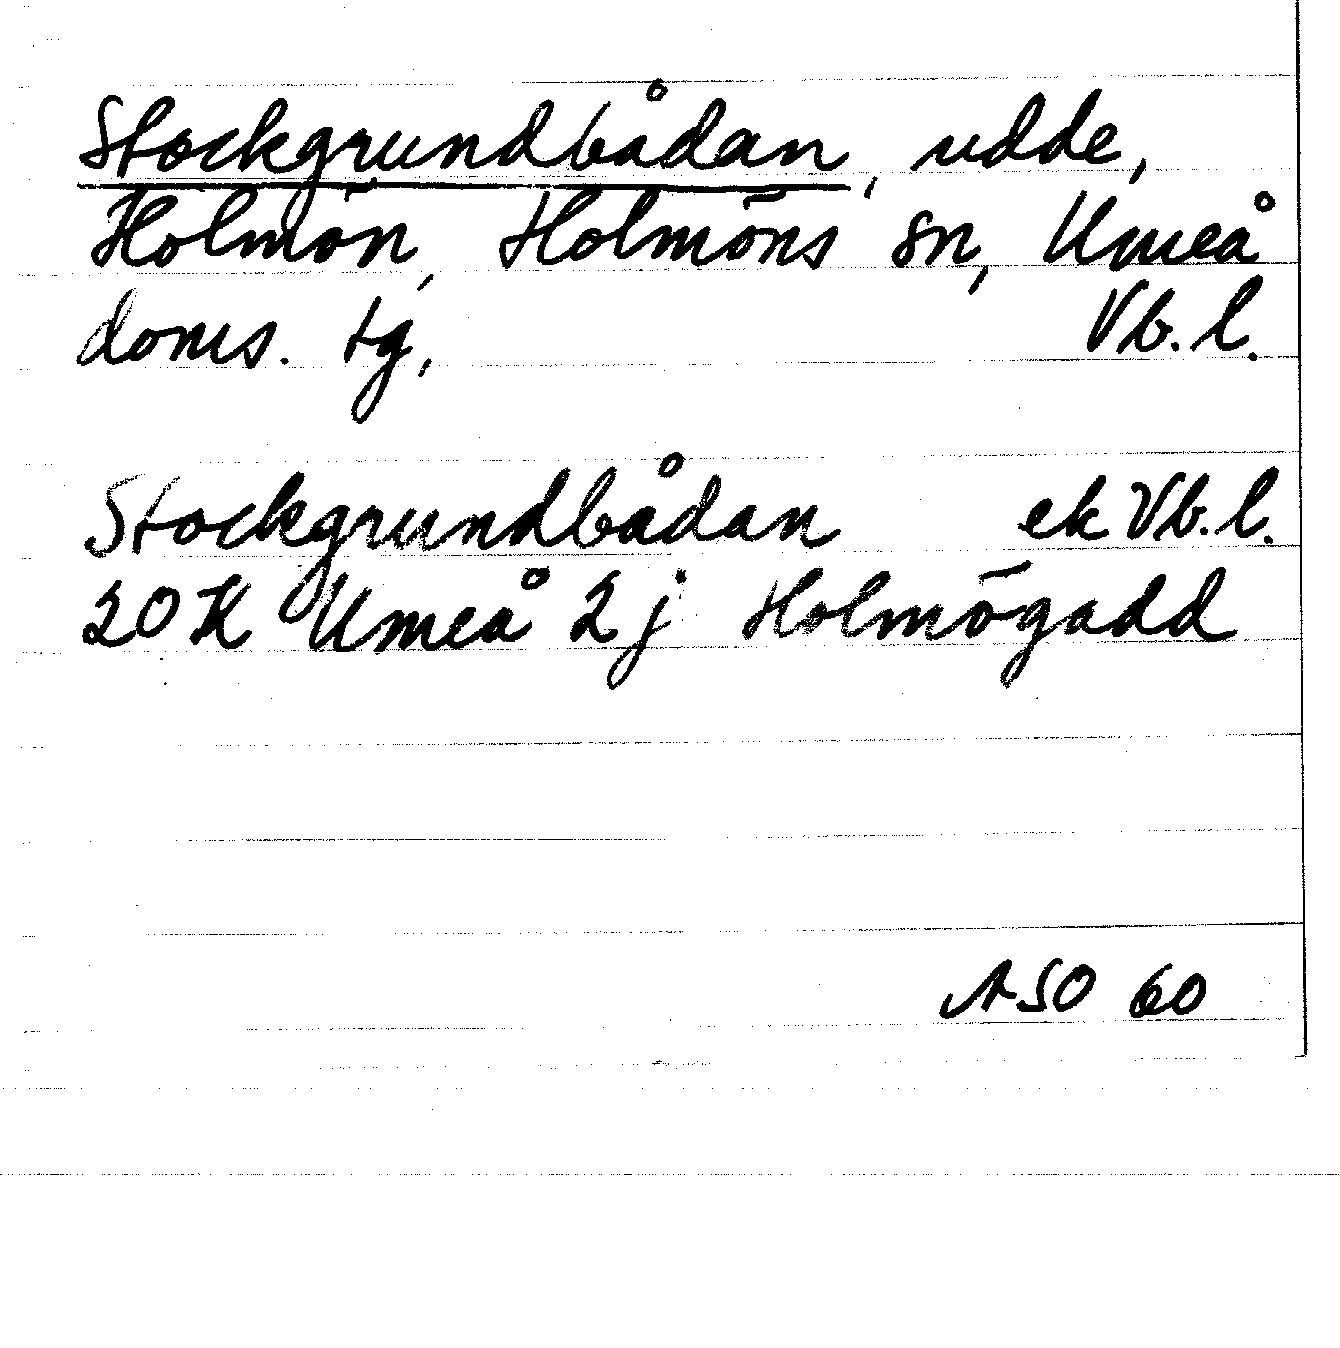 Stockgrundbådan, udde,
Holmön, Holmöns sn, Umeå
doms. tg, Vb. l.
Stockgrundbådan ek Vb. l.
20 K Umeå 2 j Holmögadd
ASO 60